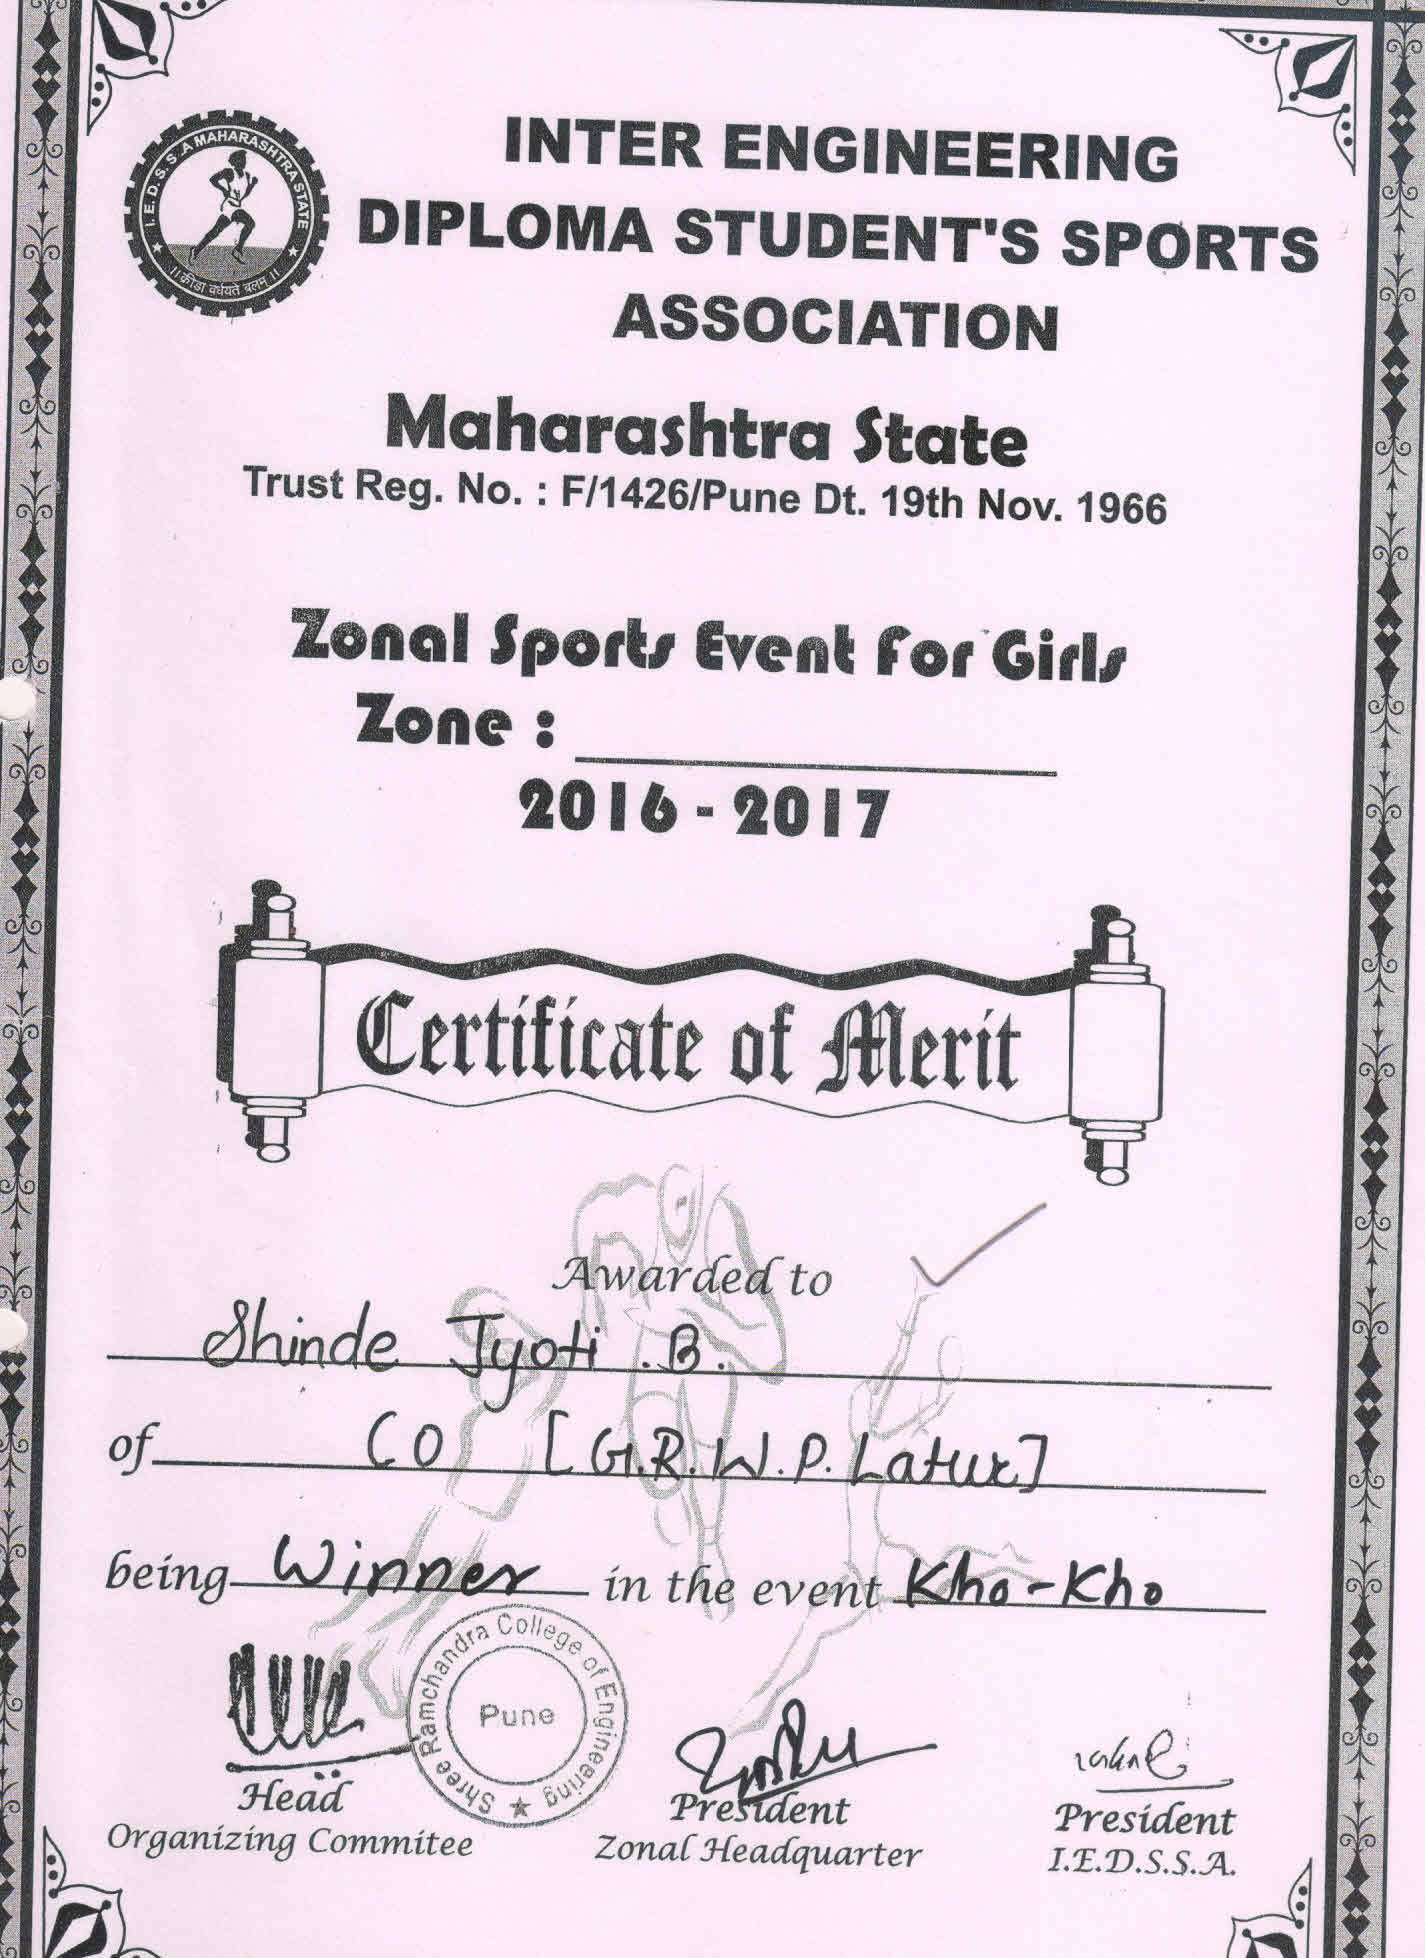 I.E.D.S.S.A MAHARASHTRA STATE
।। क्रीडा वर्धयते बलम् ।।
INTER ENGINEERING
DIPLOMA STUDENT'S SPORTS
ASSOCIATION
Maharashtra State
Trust Reg. No. : F/1426/Pune Dt. 19th Nov. 1966
Zonal Sports Event For Girls
Zone :
2016 - 2017
Certificate of Merit
Awarded to
Shinde Jyoti .B.
of CO [G.R.W.P. Latur]
being Winner in the event Kho-Kho
Shree Ramchandra College of Engineering
Pune
Head
Organizing Commitee
President
Zonal Headquarter
President
I.E.D.S.S.A.